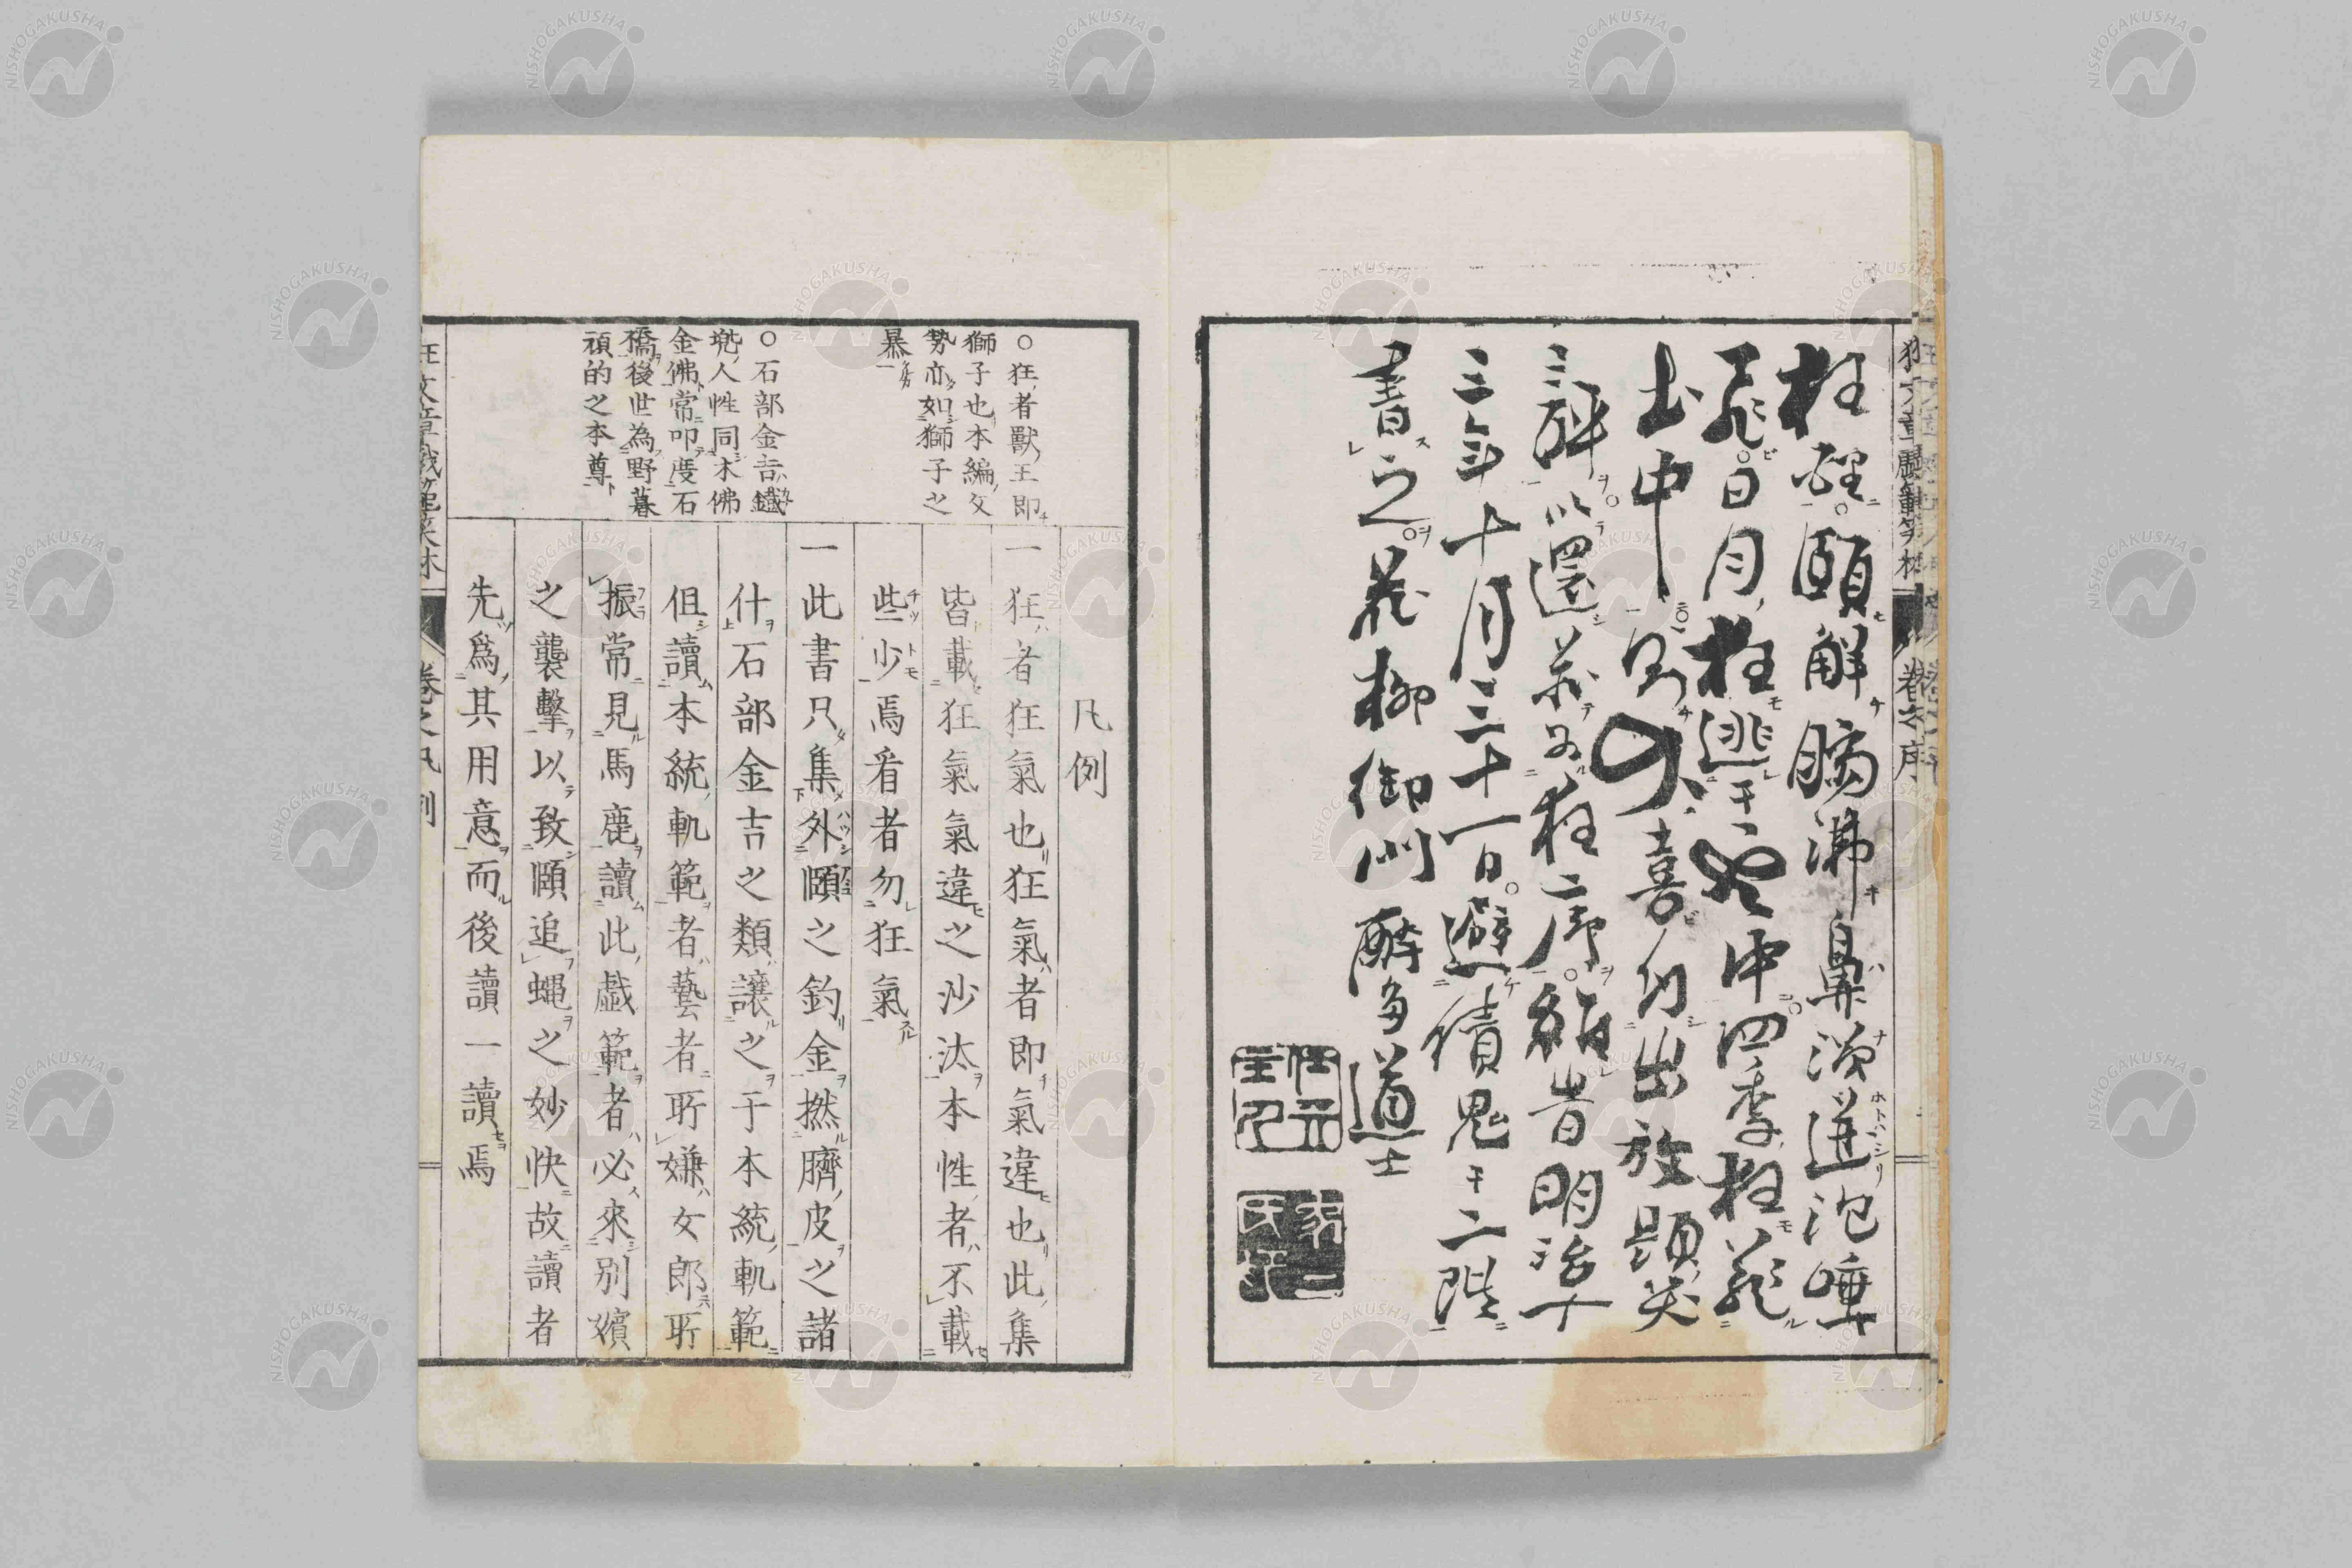 狂醒頤解膓沸鼻澬迸泡唾
飛日月狂逃于空中四季狂花
土中
三醉以還
三年十月三十一日避債鬼于二階
書之花柳御門醉多道士
凡例
一狂者狂氣也狂氣者即氣違也此集
皆載狂氣氣違之沙汰本性者不載
些少焉看者勿狂氣
一此書只集外頤之釣金撚臍皮之諸
什石部金吉之類讓之于本統軌範
但讀本統軌範者藝者所嫌女郎所
振常見馬鹿讀此戯範者必來別嬪
之襲擊以致頤追蠅之妙快故讀者
先爲其用意而後讀一讀焉
○狂者獸王即
獅子也本編文
勢亦如獅子之
暴
○石部金吉鐵
兠人性同木佛
金佛常叩度石
橋後世為野暮
頑的之本尊
卷之凡例
卷之序
NISHOGAKUSHA